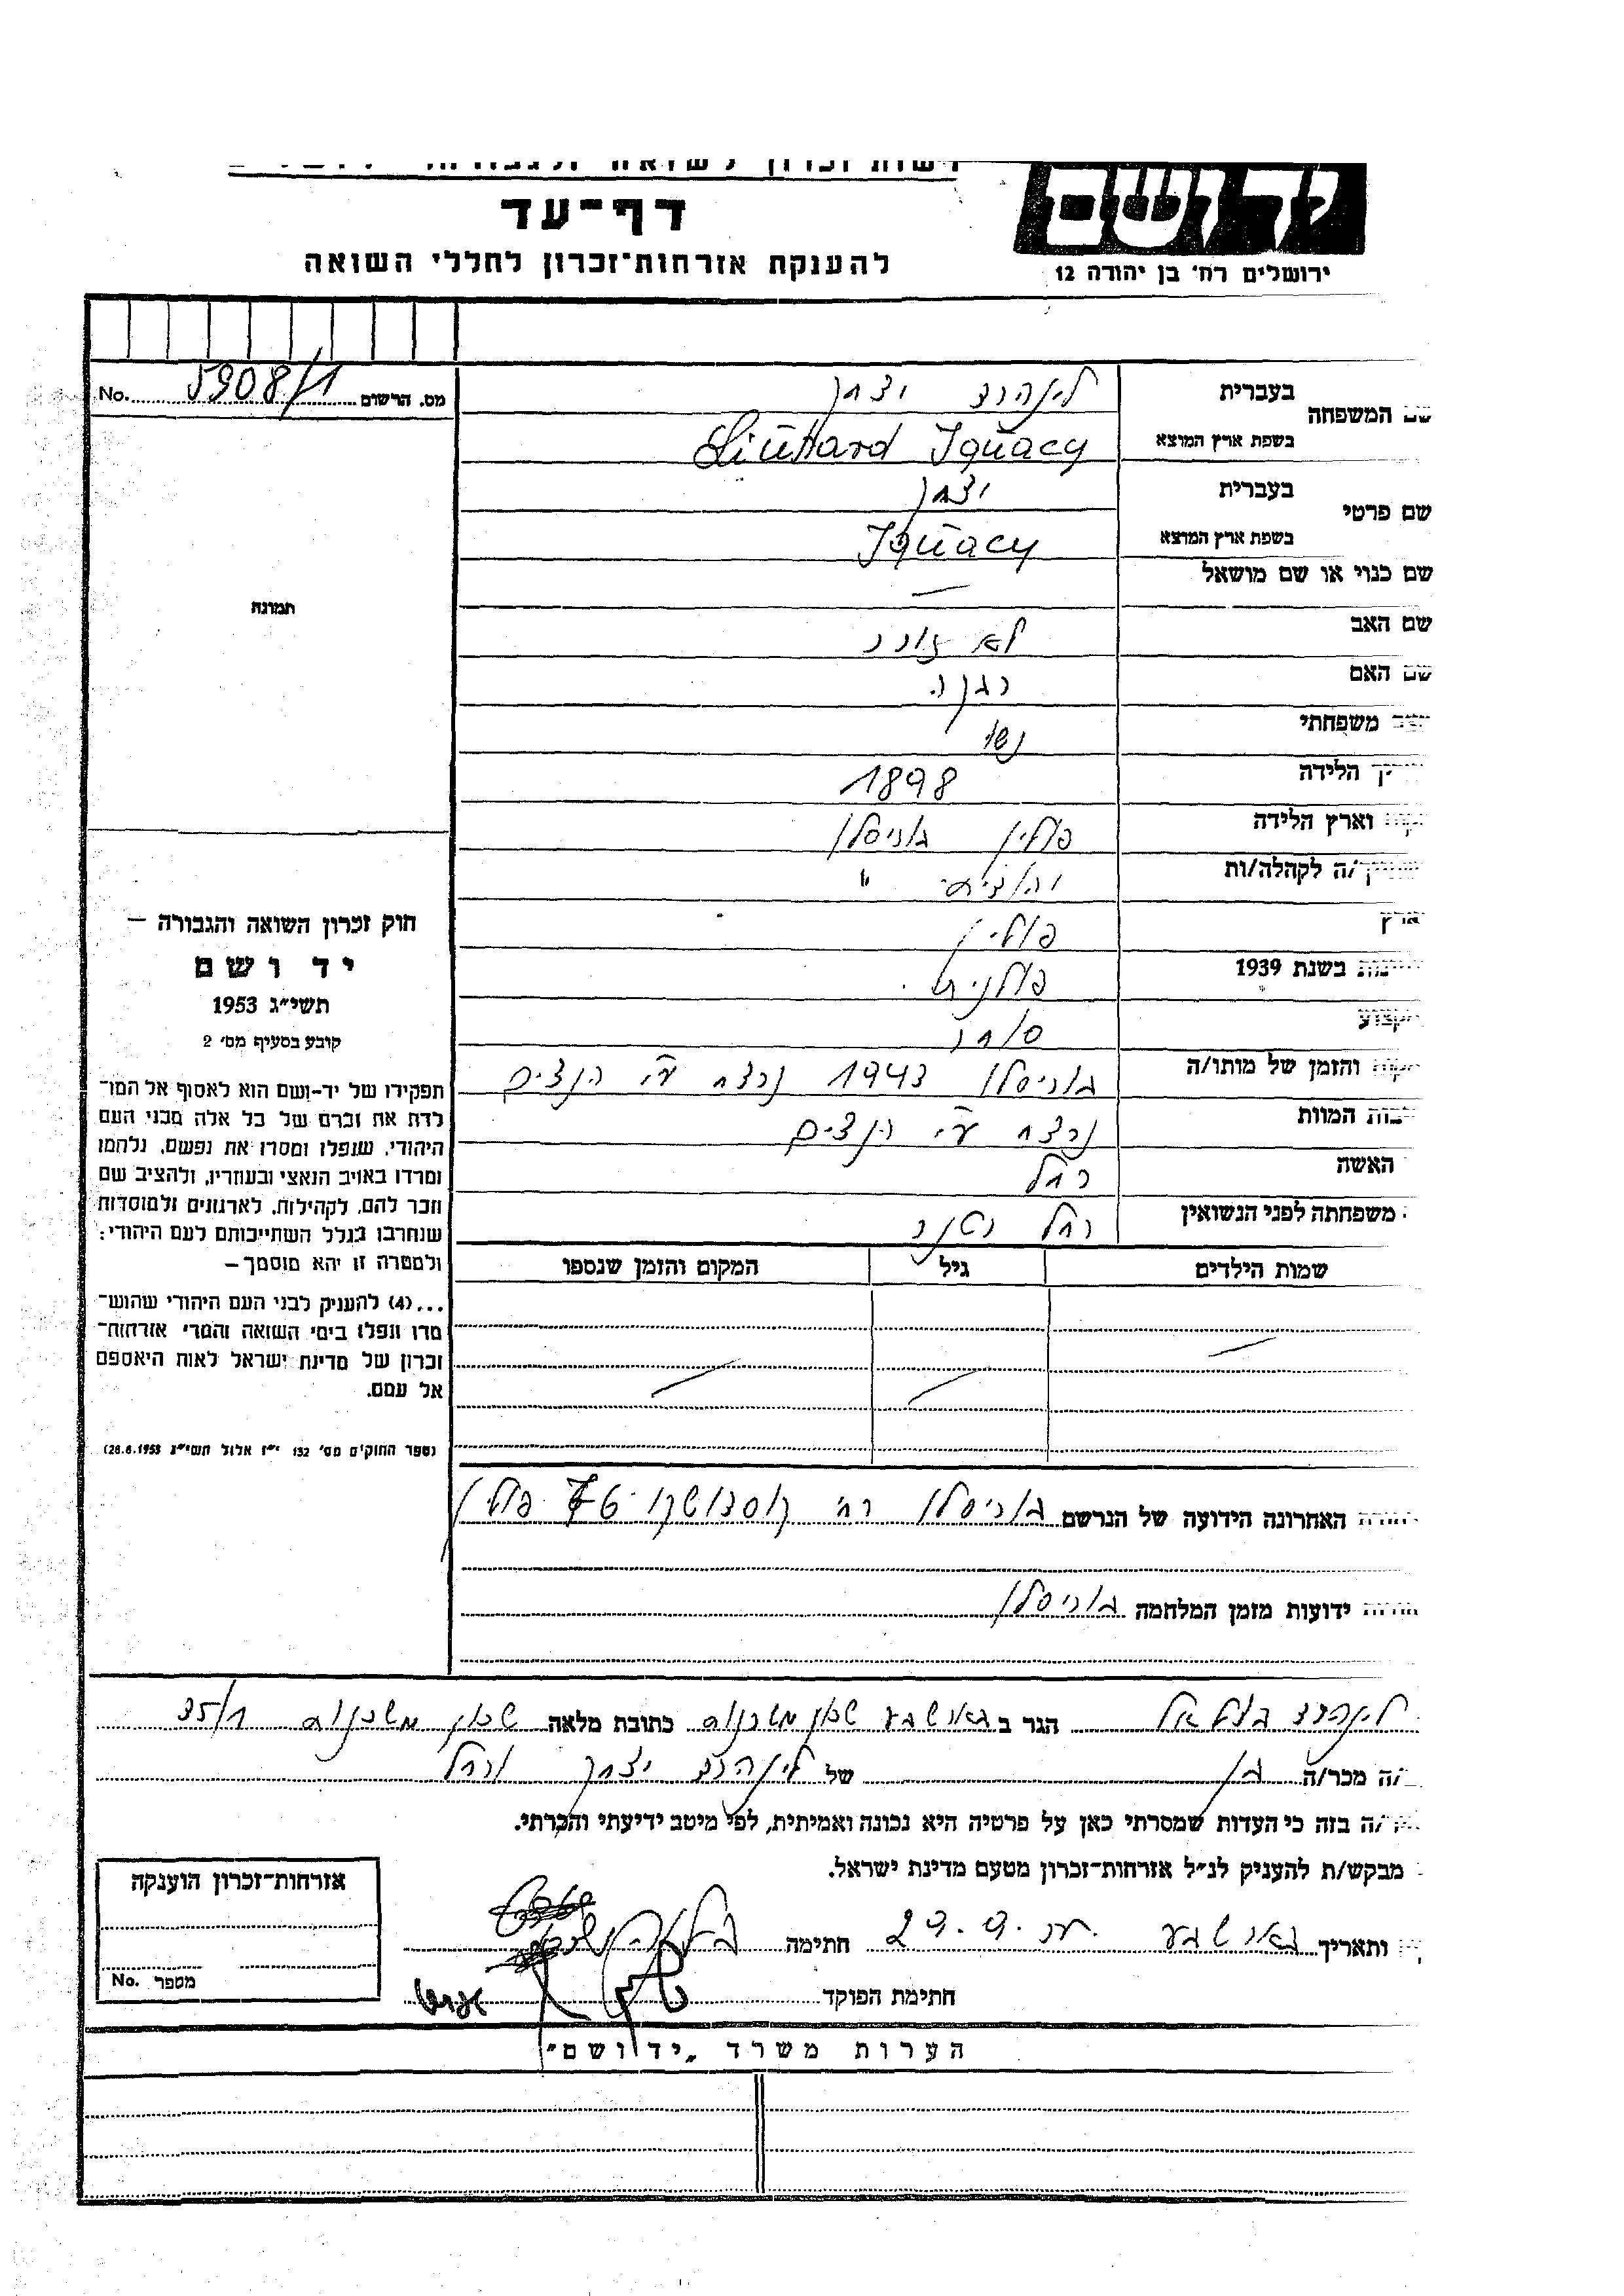 דף־עד
להענקת אזרחות־זכרון לחללי השואה
יד ושם
ירושלים רח׳ בן יהודה 12
מס. הרשום 5908/1 No.
שם המשפחה
בעברית לינהרד יצחק
בשפת ארץ המוצא Linhard Ignacy
שם פרטי
בעברית יצחק
בשפת ארץ המוצא Ignacy
שם כנוי או שם מושאל —
שם האב לא זוכר
שם האם
משפחתי נשוי
הלידה 1898
וארץ הלידה פולין בוריסלב
ה לקהלה/ות "
ארץ פולין
בשנת 1939 פולנית
סוחר
והזמן של מותו/ה בוריסלב 1943 נרצח ע״י הנצים
המוות נרצח ע״י הנצים
האשה רחל
משפחתה לפני הנשואין רחל
שמות הילדים גיל המקום והזמן שנספו
תמונה
חוק זכרון השואה והגבורה —
יד ושם
תשי״ג 1953
קובע בסעיף מס׳ 2
תפקידו של יד־ושם הוא לאסוף אל המו־
לדת את זכרם של כל אלה מבני העם
היהודי, שנפלו ומסרו את נפשם, נלחמו
ומרדו באויב הנאצי ובעוזריו, ולהציב שם
וזכר להם, לקהילות, לארגונים ולמוסדות
שנחרבו בגלל השתייכותם לעם היהודי;
ולמטרה זו יהא מוסמך—
...(4) להעניק לבני העם היהודי שהוש־
מדו ונפלו בימי השואה והמרי אזרחות־
זכרון של מדינת ישראל לאות היאספם
אל עמם.
(ספר החוקים מס׳ 132 י״ז אלול תשי״ג 28.8.1953)
האחרונה הידועה של הנרשם בוריסלב רח׳ פולין
ידועות מזמן המלחמה בוריסלב
לינהרד בצלאל הגר ב באר שבע שכון משכנות כתובת מלאה שכון משכנות 35/1
ה מכר/ה בן של לינהרד יצחק ורחל
ה בזה כי העדות שמסרתי כאן על פרטיה היא נכונה ואמיתית, לפי מיטב ידיעתי והכרתי.
מבקש/ת להעניק לנ״ל אזרחות־זכרון מטעם מדינת ישראל.
ותאריך באר שבע חתימה
חתימת הפוקד
אזרחות־זכרון הוענקה
מספר No.
הערות משרד „יד ושם״